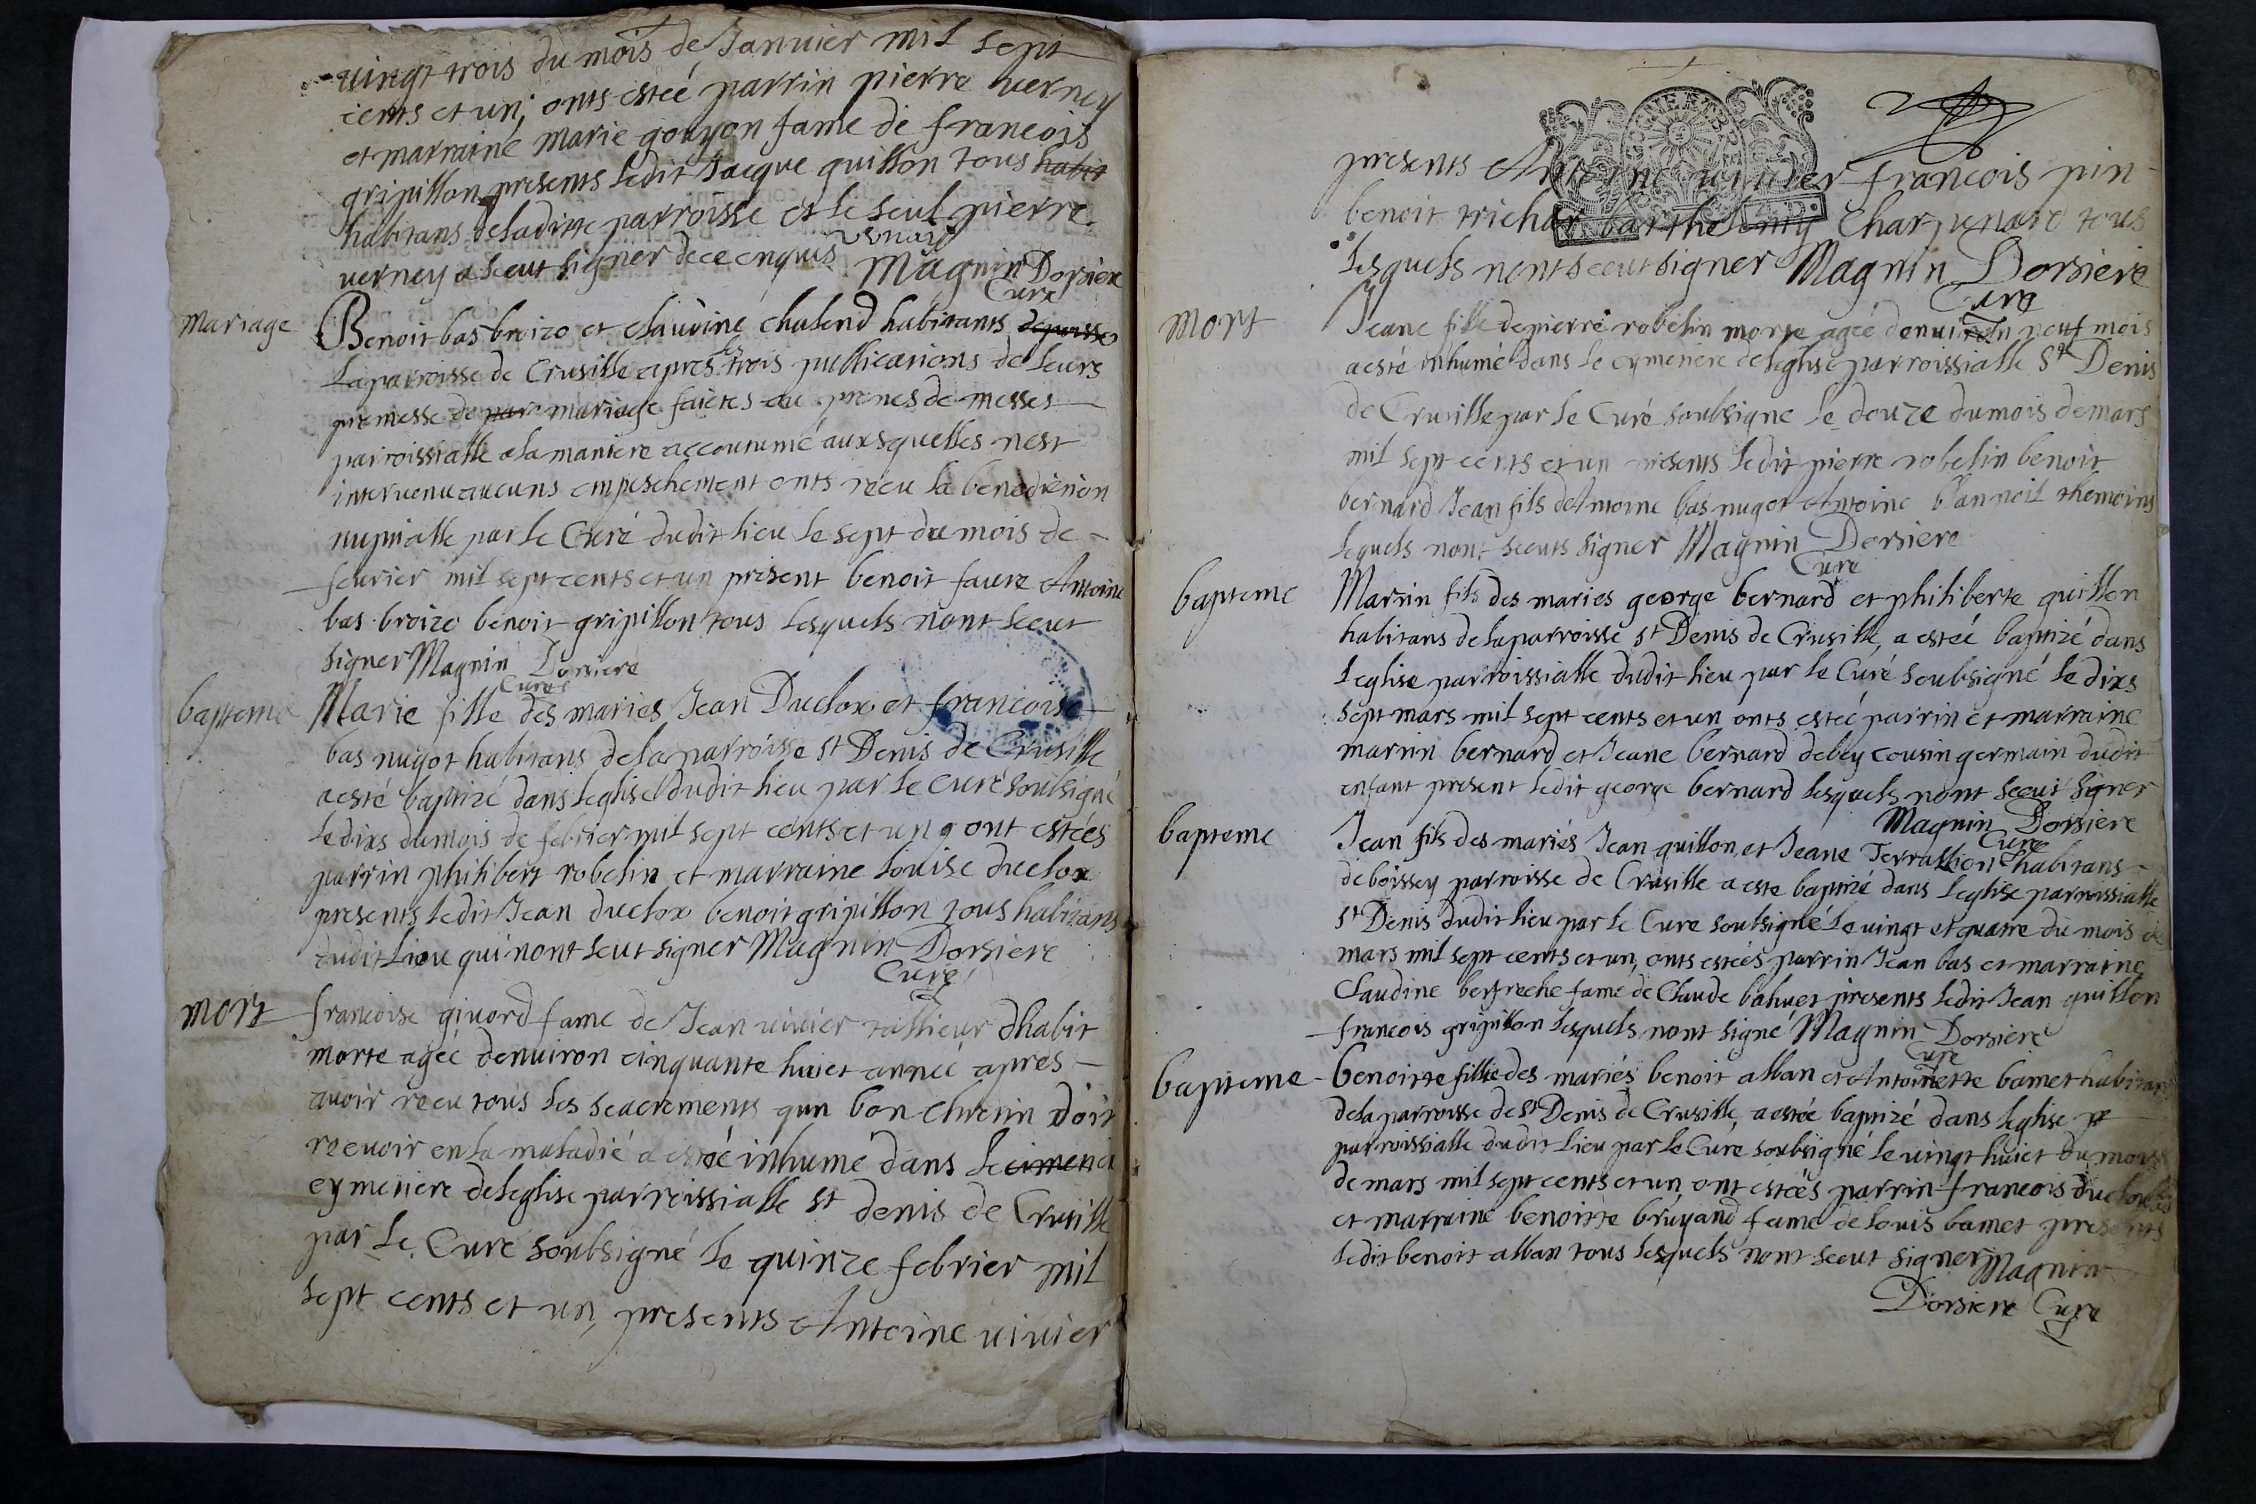 vingt trois du mois de Janvier mil sept
cents et un, onts estéé parrin pierre verney
et marraine marie gouyon fame de francois
gripillon presents ledit Jacque guillon tous habit
habitans deladitte parroisse et le seul pierre
verney a sceut signer dece enquis verney Magnin Dorsiere
Curé
mariage
Benoit bas broizo et claudine chalend habitants deparoisse
La parroisse de Crusille apres les trois publications de leurs
promesse de par mariage faictes au prones de messes
parroissialle a la maniere accoutumé auxsquelles nest
intervenu aucuns empeschement onts receu la benediction
nuptialle par le Curé dudit lieu le sept du mois de
fevrier mil sept cents et un present benoit faure Antoine
bas broizo benoit gripillon tous lesquels nont sceut
signer Magnin Dorsiere
Curé
bapteme
Marie fille des mariés Jean Duclox et francoise
bas nugot habitans dela parroisse st Denis de Crusille
aesté baptizé dans leglise dudit lieu par le curé soubsigné
le dixs dumois de febrier mil sept cents et un ont estéés
parrin philibert robelin et marraine louise duclox
presents ledit Jean duclox benoit gripillon tous habitans
dudit Lieu qui nont seut signer Magnin Dorsiere
Curé
mort
francoise givord fame de Jean vivier tallieur dhabit
morte agéé denviron cinquante huict annéé apres
avoir receu tous les seacrements qun bon chretin doit
recevoir en la maladié a estéé inhumé dans le cimetiei
cymetiere deleglise parroissialle st denis de Crusille
par Le Curé soubsigné le quinze febrier mil
sept cents et un, presents Antoine vivier
presents Antoine vivier francois pin
benoit trichar barthelemy Charpenard tous
lesquels nont sceut signer Magnin Dorsiere
Curé
mort
Jeane fille de pierre robelin morte agéé denviron neuf mois
aesté inhumé dans le cymetiere deleglise parroissialle St Denis
de Crusille par le Curé soubsigne le douze dumois demars
mil sept cents et un presents ledit pierre robelin benoit
bernard Jean fils deAntoine bas nugot Antoine blanneil themoins
lequels nont sceuts signer Magnin Dorsiere
Curé
bapteme
Martin fils des mariés george bernard et philiberte guillon
habitans delaparroisse st Denis de Crusille, a estéé baptizé dans
leglise parroissialle dudit lieu par le Curé soubsigné le dixs
sept mars mil sept cents et un onts estéé parrin et marraine
martin bernard et Jeane bernard debey cousin germain dudit
enfant present ledit george bernard lesquels nont sceut signer
Magnin Dorsiere
Curé
bapteme
Jean fils des mariés Jean guillon et Jeane Terraillion habitans
deboissey parroisse de Crusille a este baptizé dans leglise parroissialle
st Denis dudit lieu par le Cure soubsigné le vingt et quatre du mois de
mars mil sept cents et un, onts estéés parrin Jean bas et marraine
Claudine bertreche fame de Claude bahuet presents ledit Jean guillon
francois gripillon lesquels nont signé Magnin Dorsiere
Curé
bapteme
benoitte fillie des mariés benoit alban et Antoinette bamet habitans
dela parroisse de st Denis de Crusille, a estée baptizé dans leglise p
parroissialle dudit Lieu par le Curé soubsigné le vingt huict du mois
de mars mil sept cents et un, ont estéés parrin francois duclou
et marraine benoitte bruyand fame de louis bamet presents
ledit benoit alban tous lesquels nont sceut signer Magnin
Dorsiere Curé